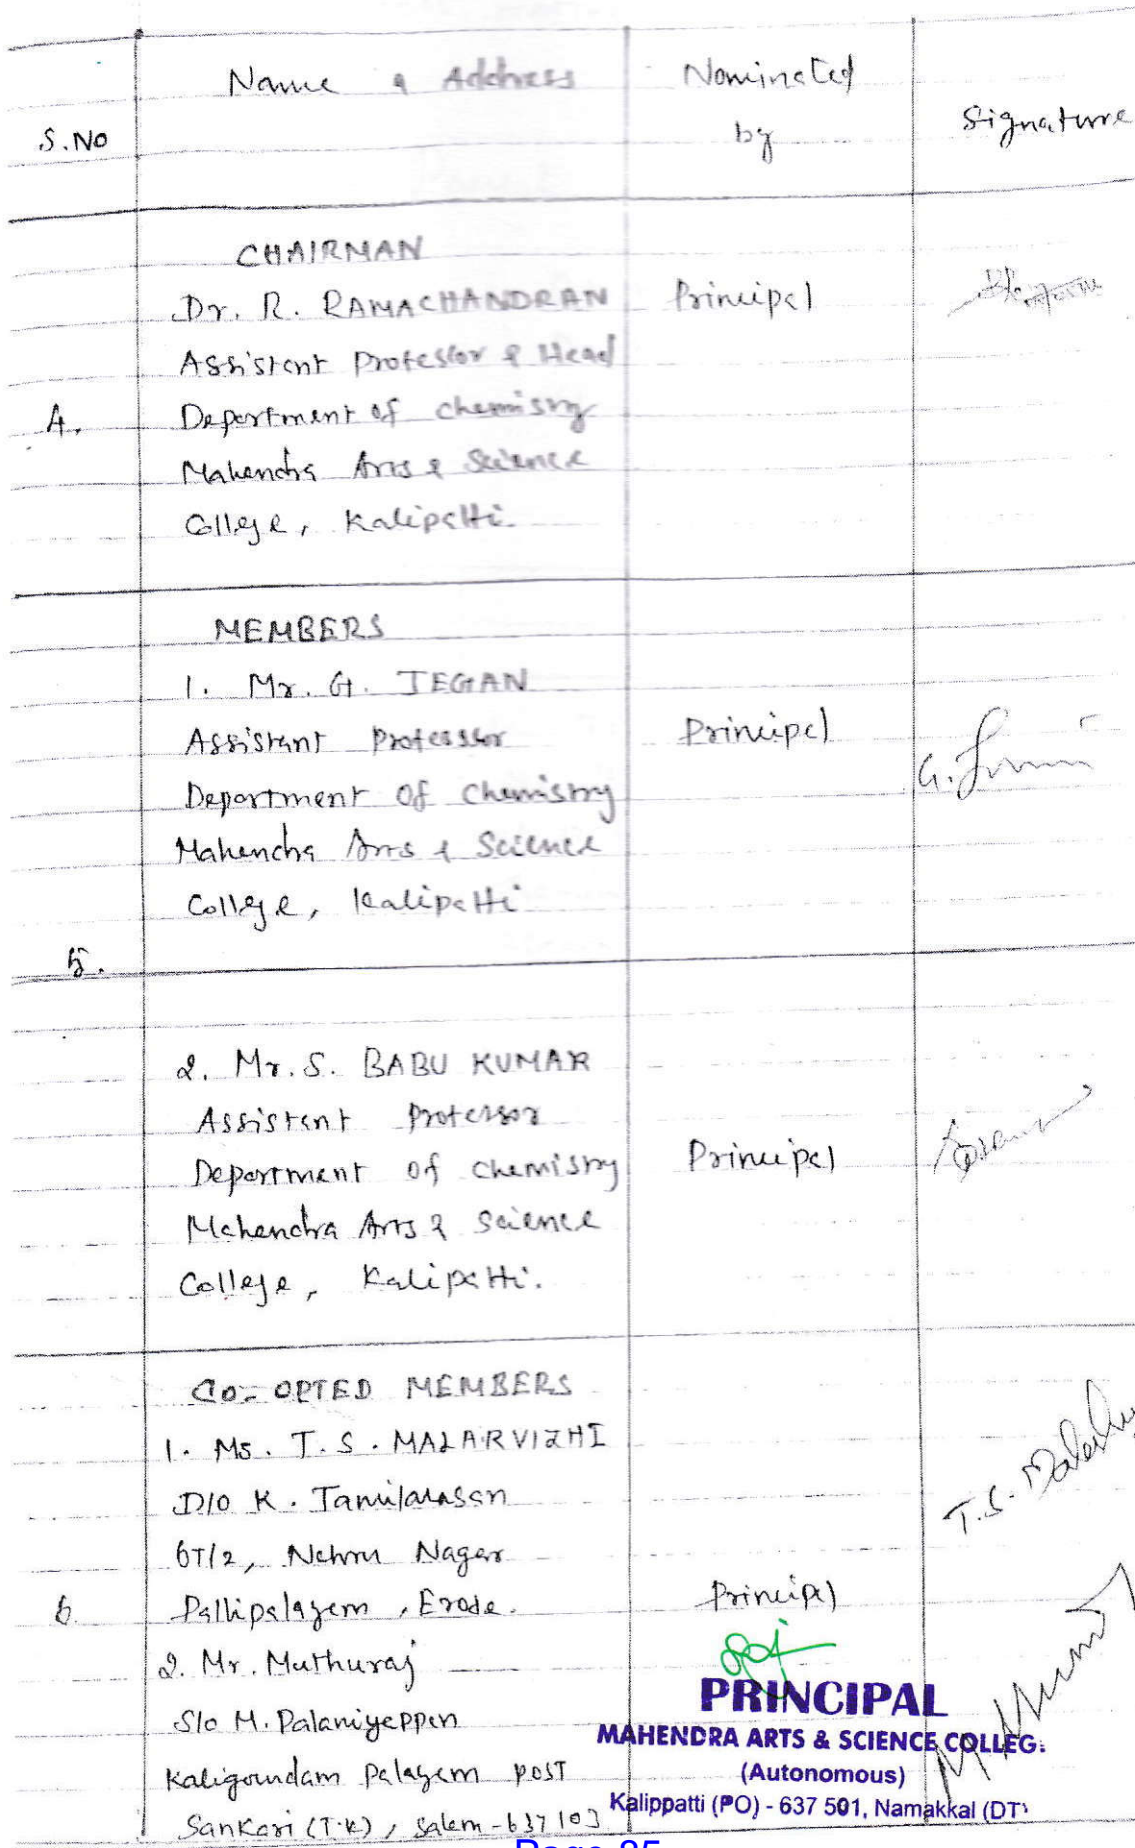 S.No Name & Address Nominated by Signature
CHAIRMAN
Dr. R. RAMACHANDRAN Principal
Assistant Professor & Head
4. Department of chemistry
Mahendra Arts & Science
College, Kalipatti.
MEMBERS
1. Mr. G. JEGAN
Assistant Professor Principal
Department of Chemistry G.
Mahendra Arts & Science
College, Kalipatti
5.
2. Mr. S. BABU KUMAR
Assistant Professor
Department of chemistry Principal
Mahendra Arts & Science
College, Kalipatti.
CO-OPTED MEMBERS
1. Ms. T. S. MALARVIZHI
D/O K. Tamilarasan T.S.
6T/2, Nehru Nagar
6. Pallipalayam, Erode. Principal
2. Mr. Muthuraj
S/o M. Palaniyappan
Kaligoundam Palayam POST
Sankari (T.K), Salem-637103
PRINCIPAL
MAHENDRA ARTS & SCIENCE COLLEG
(Autonomous)
Kalippatti (PO) - 637 501, Namakkal (DT)
Page 85